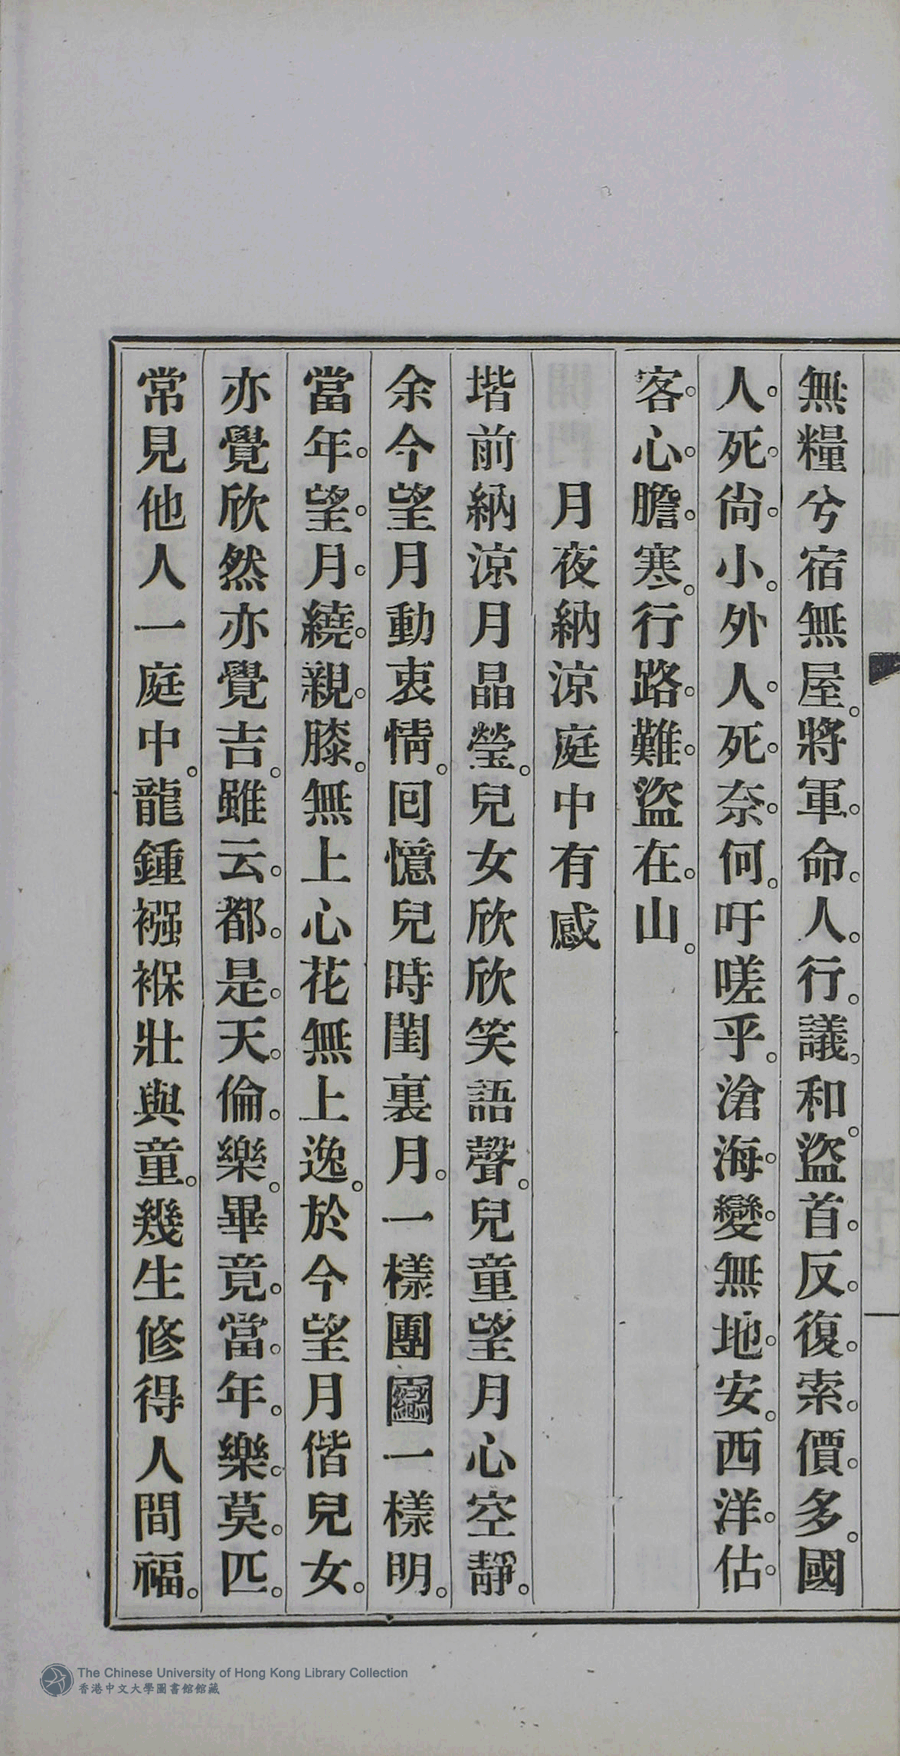 無糧兮宿無屋。將軍。命。人。行。議。和。盜首。反。復。索。價。多。國
人。死。尙。小。外人。死。奈。何。吁嗟乎。滄海。變。無地。安。西洋。估。
客。心。膽。寒。行路。難。盜在。山。
月夜納涼庭中有感
堦前納涼月晶瑩。兒女欣欣笑語聲。兒童望月心空靜。
余今望月動衷情。回憶兒時閨裏月。一樣團圞一樣明。
當年。望。月。繞。親。膝。無上心花無上逸。於今望月偕兒女。
亦覺欣然亦覺吉。雖云。都。是。天。倫。樂。畢竟。當。年。樂。莫。匹。
常見他人一庭中。龍鍾襁褓壯與童。幾生修得人間福。
The Chinese University of Hong Kong Library Collection
香港中文大學圖書館館藏